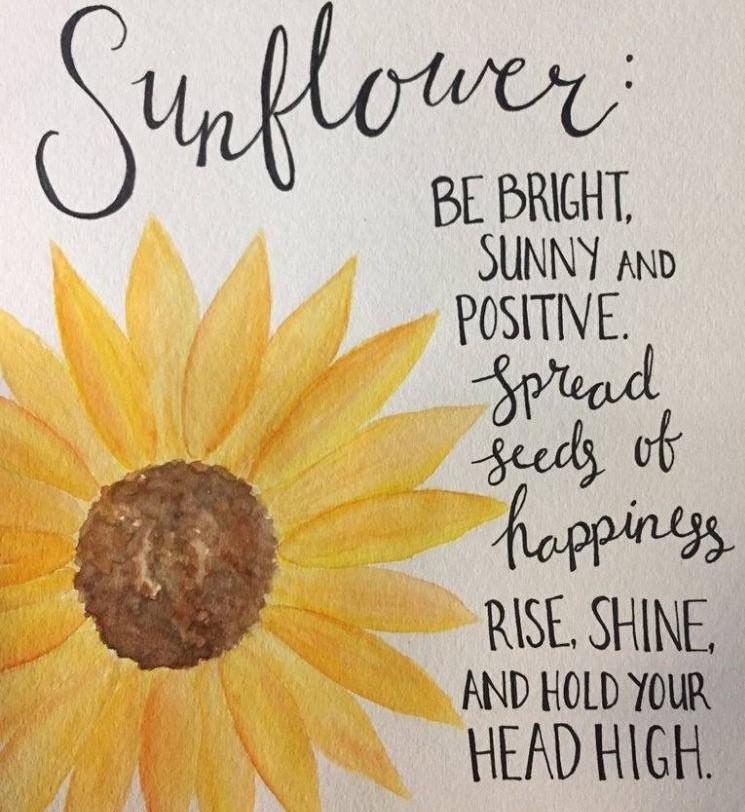 Sunflower:
BE BRIGHT,
SUNNY AND
POSITIVE.
Spread
seeds of
happiness
RISE, SHINE,
AND HOLD YOUR
HEAD HIGH.